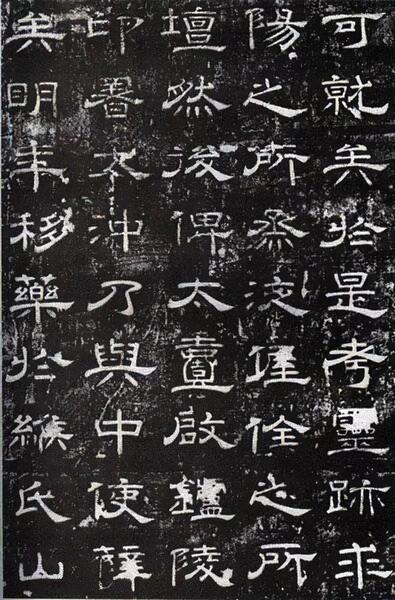 可就矣於是考靈跡求
陽之所烝液偓佺之所
壇然後俾太壹啟鑪陵
印署太沖乃與中使薛
矣明年移藥於緱氏山